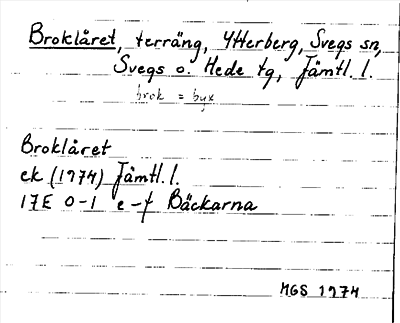 Broklåret, terräng, Ytterberg, Svegs sn,
Svegs o. Hede tg, Jämtl. l.
brok = byx
Broklåret
ek (1974) Jämtl. l.
17E 0-1 e-f Bäckarna
MGS 1974